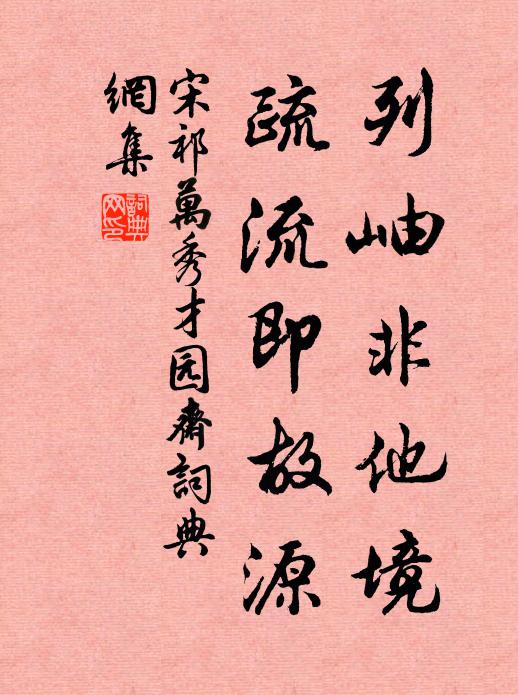 列岫非他境
疏流即故源
宋祁萬秀才园齋詞典
網集
詞典網印